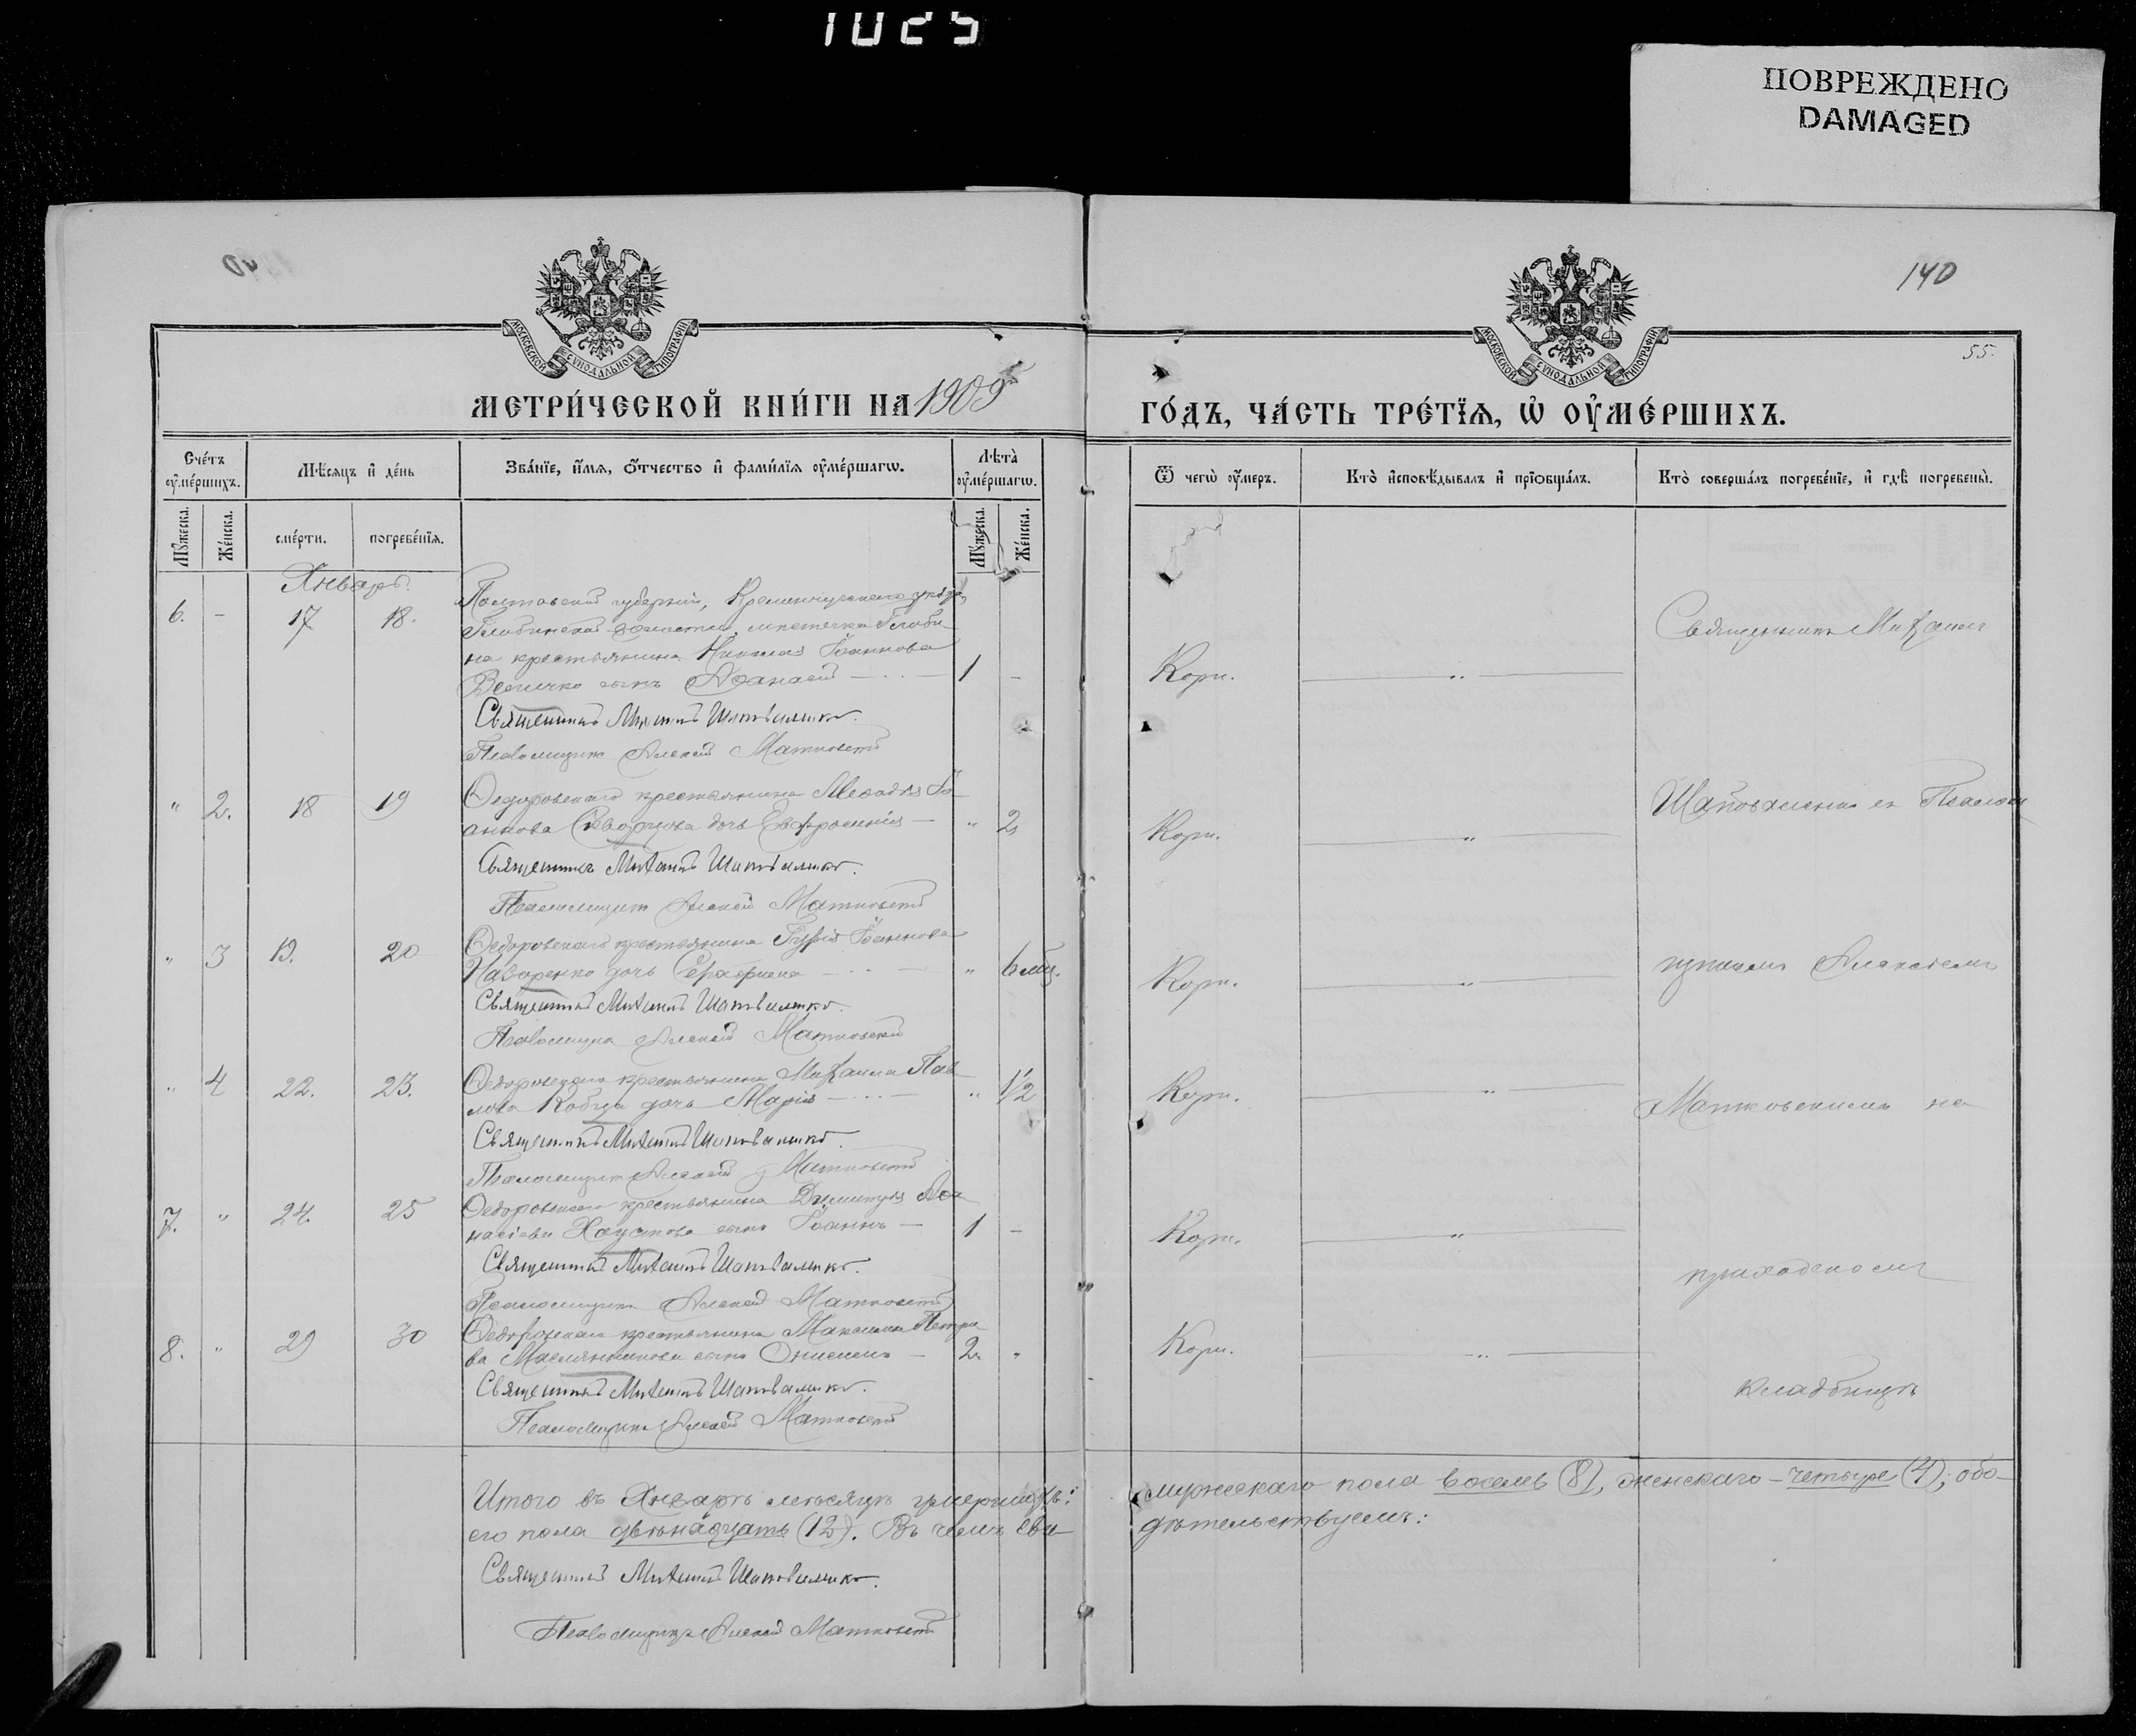 1025
ПОВРЕЖДЕНО
DAMAGED
140
55.
МОСКОВСКОЙ СУНОДАЛЬНОЙ ТИПОГРАФІИ
МОСКОВСКОЙ СУНОДАЛЬНОЙ ТИПОГРАФІИ
МЕТРИ́ЧЕСКОЙ КНИ́ГИ НА 1909
ГО́ДЪ, ЧА́СТЬ ТРЕ́ТЇѦ, Ѡ҆ ОУ҆МЕ́РШИХЪ.
Сче́тъ оу҆ме́ршихъ.
Мѣ́сяцъ и҆ де́нь
Зва́нїе, и҆́мѧ, ѻ҆́тчество и҆ фами́лїѧ оу҆ме́ршагѡ.
Лѣта̀ оу҆ме́ршагѡ.
Ѿ чегѡ̀ оу҆́меръ.
Кто̀ и҆сповѣ́дывалъ и҆ прїѻбща́лъ.
Кто̀ соверша́лъ погребе́нїе, и҆ гдѣ̀ погребены̀.
Мꙋ́жеска.
Же́нска.
сме́рти.
погребе́нїѧ.
Мꙋ́жеска.
Же́нска.
Январь.
6. - 17 18. Полтавской губерніи, Кременчугскаго уѣзда,
Глобинской волости, мѣстечка Глоби-
на крестьянина Николая Іоаннова
Величко сынъ Аѳанасій — 1 - Корь. — " —
Священникъ Михаилъ Шаповаленко.
Псаломщикъ Алексѣй Матковскій
Священникъ Михаилъ
" 2. 18 19 Ѳедоровскаго крестьянина Меѳодія Іо-
аннова Скворцова дочь Евфросинія — " 2 Корь. — " —
Священникъ Михаилъ Шаповаленко.
Псаломщикъ Алексѣй Матковскій
Шаповаленко съ Псалом
" 3 19. 20 Ѳедоровскаго крестьянина Іоаннова
Назаренко дочь Серафима — " 6 мѣс. Корь. — " —
Священникъ Михаилъ Шаповаленко.
Псаломщикъ Алексѣй Матковскій
щикомъ Алексѣемъ
" 4 22. 23. Ѳедоровскаго крестьянина Михаила Пав-
лова Кобца дочь Марія — " 1½ Корь. — " —
Священникъ Михаилъ Шаповаленко.
Псаломщикъ Алексѣй Матковскій
Матковскимъ на
7. " 24. 25 Ѳедоровскаго крестьянина Димитрія Аѳа-
насіева Хаустова сынъ Іоаннъ — 1 - Корь. — " —
Священникъ Михаилъ Шаповаленко.
Псаломщикъ Алексѣй Матковскій
приходскомъ
8. " 29 30 Ѳедоровскаго крестьянина Максима Петро-
ва Масленникова сынъ Онисимъ — 2. " Корь. — " —
Священникъ Михаилъ Шаповаленко.
Псаломщикъ Алексѣй Матковскій
кладбищѣ
Итого въ Январѣ мѣсяцѣ умершихъ: мужескаго пола восемь (8), женскаго – четыре (4); обо-
его пола двѣнадцать (12). Въ чемъ сви-дѣтельствуемъ:
Священникъ Михаилъ Шаповаленко.
Псаломщикъ Алексѣй Матковскій